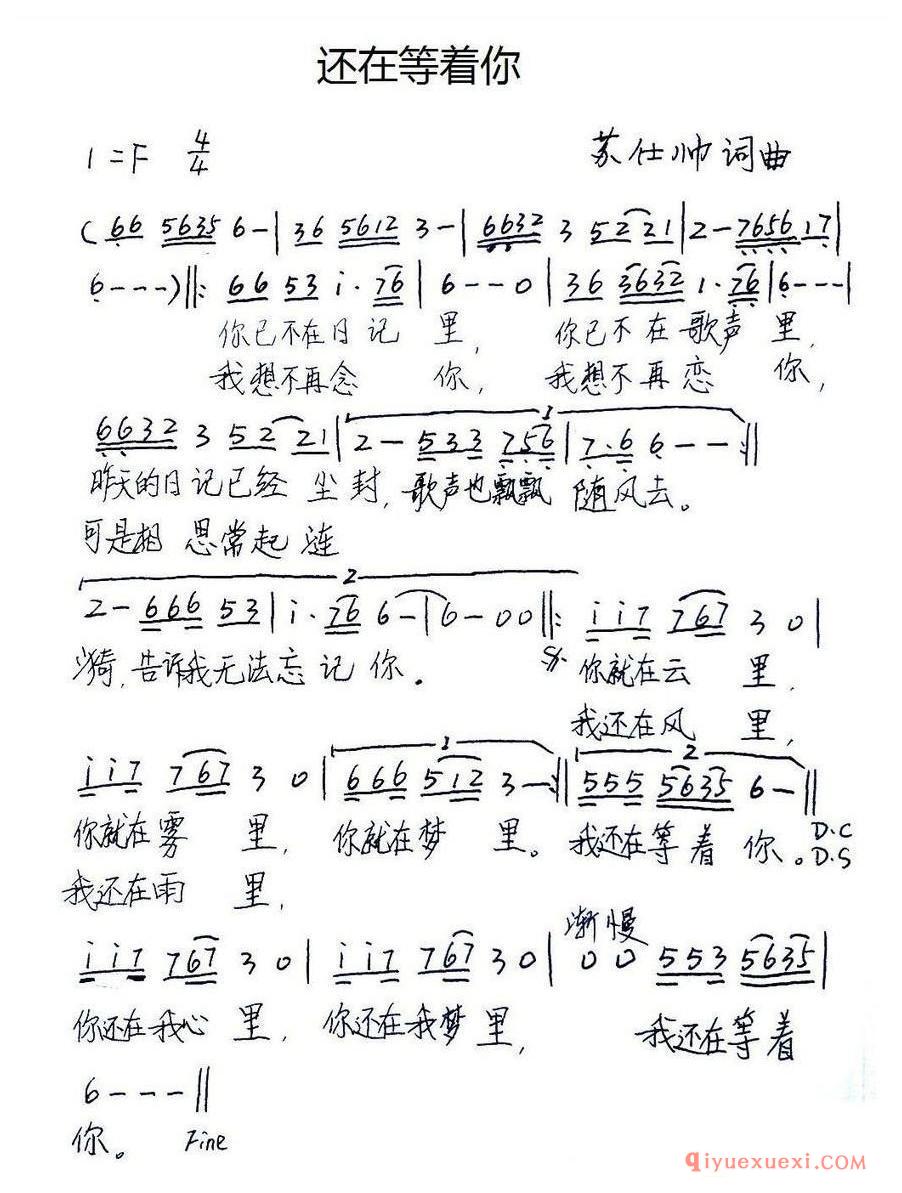 还在等着你
1=F 4/4 苏仕帅词曲
( 66 5635 6-| 36 5612 3-| 6632 3 5221| 2-7656 17|
6---)‖: 66 53 i·76| 6---0| 36 3632 1·76| 6---|
你已不在日记 里， 你已不在歌声里，
我想不再念 你， 我想不再恋 你，
1
6632 3 52 21| 2-533 756| 7·6 6--:‖
昨天的日记已经尘封，歌声也飘飘 随风去。
可是相思常起涟
2
2-666 53| i·76 6-| 6-00‖: ii7 767 3 0|
漪，告诉我无法忘记你。 你就在云 里，
我还在风 里，
1 2
ii7 767 3 0| 666 512 3-:‖ 555 5635 6-‖
你就在雾 里， 你就在梦 里。我还在等着 你。D.C
我还在雨 里， D.S
渐慢
ii7 767 3 0| ii7 767 3 0| 00 553 5635|
你还在我心 里， 你还在我梦里， 我还在等着
6---‖
你。 Fine
qiyuexuexi.com